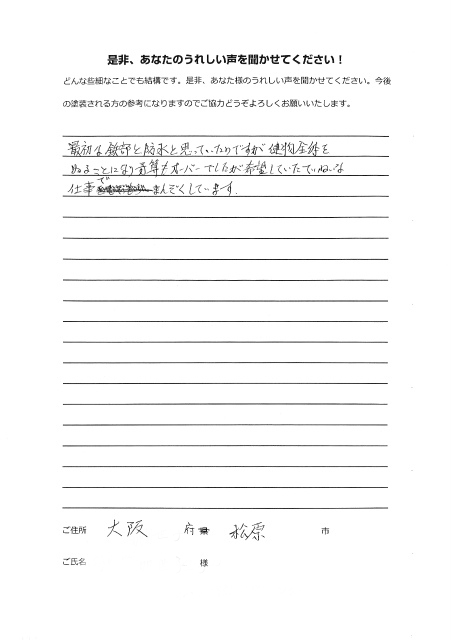 是非、あなたのうれしい声を聞かせてください！
どんな些細なことでも結構です。是非、あなた様のうれしい声を聞かせてください。今後
の塗装される方の参考になりますのでご協力どうぞよろしくお願いいたします。
最初は鉄部と防水と思っていたのですが建物全体を
ぬることになり予算もオーバーでしたが希望していたていねいな
仕事でまんぞくしています。
ご住所 大阪 府 松原 市
ご氏名 様